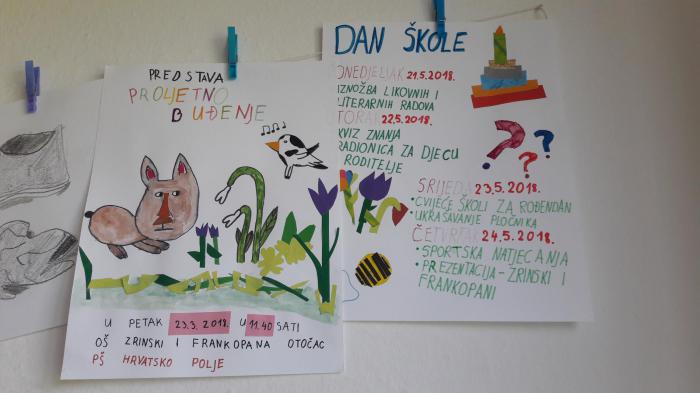 PREDSTAVA
PROLJETNO
BUĐENJE
U PETAK 23.3.2018. U 11.40 SATI
OŠ ZRINSKI I FRANKOPANA OTOČAC
PŠ HRVATSKO POLJE
DAN ŠKOLE
ONEDJELJAK 21.5.2018.
IZNOŽBA LIKOVNIH I
LITERARNIH RADOVA
UTORAK 22.5.2018.
KVIZ ZNANJA
RADIONICA ZA DJECU
I RODITELJE
SRIJEDA 23.5.2018.
• CVIJEĆE ŠKOLI ZA ROĐENDAN
UKRAŠAVANJE PLOČNIKA
ČETVRTAK 24.5.2018.
• SPORTSKA NATJECANJA
• PREZENTACIJA - ZRINSKI I
FRANKOPANI